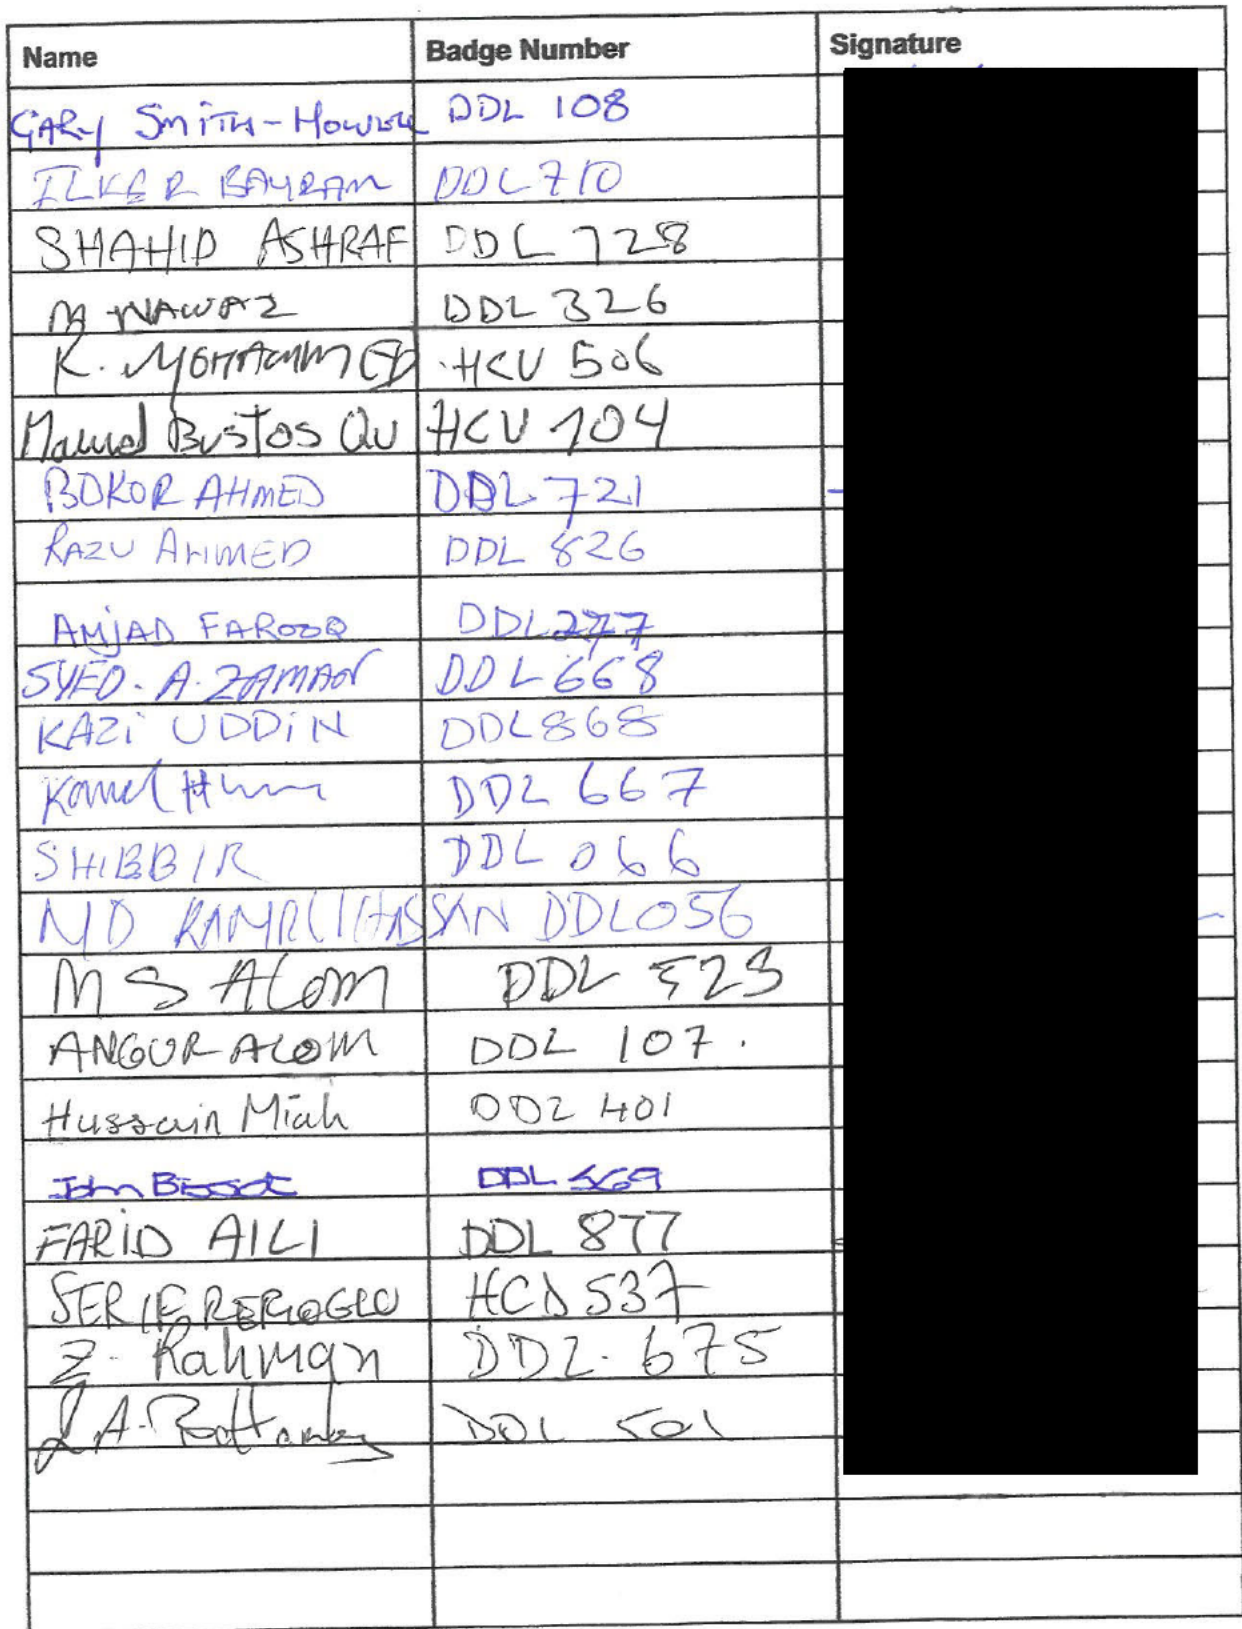 Name Badge Number Signature
GARY SMITH-HOWELL DDL 108
ILKER BAYRAM DDL 710
SHAHID ASHRAF DDL 728
M NAWAZ DDL 326
K. MOHAMMED HCV 506
Manuel Bustos Qu HCV 104
BOKOR AHMED DDL 721
RAZU AHMED DDL 826
AMJAD FAROOQ DDL 277
SYED. A. ZAMAN DDL 668
KAZi UDDiN DDL868
Kamel DDL 667
SHIBBIR DDL 066
MD KAMRUL HASSAN DDL056
M S Alom DDL 523
ANGUR ALOM DDL 107.
Hussain Miah DDL 401
John DDL 569
FARID AILI DDL 877
SERIF HCD 537
Z. Rahman DDL. 675
A. DDL 501